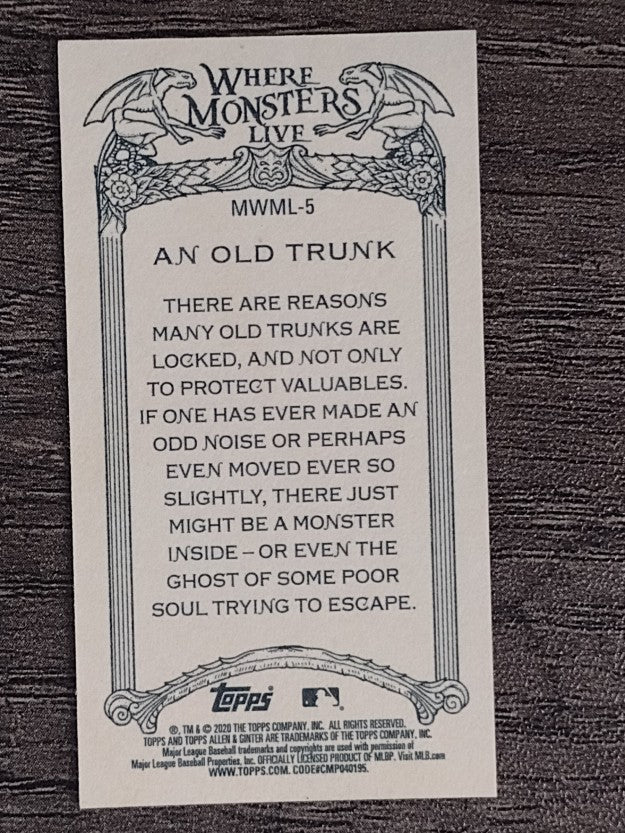 WHERE
MONSTERS
LIVE
MWML-5
AN OLD TRUNK
THERE ARE REASONS
MANY OLD TRUNKS ARE
LOCKED, AND NOT ONLY
TO PROTECT VALUABLES.
IF ONE HAS EVER MADE AN
ODD NOISE OR PERHAPS
EVEN MOVED EVER SO
SLIGHTLY, THERE JUST
MIGHT BE A MONSTER
INSIDE – OR EVEN THE
GHOST OF SOME POOR
SOUL TRYING TO ESCAPE.
topps
®, TM & © 2020 THE TOPPS COMPANY, INC. ALL RIGHTS RESERVED.
TOPPS AND TOPPS ALLEN & GINTER ARE TRADEMARKS OF THE TOPPS COMPANY, INC.
Major League Baseball trademarks and copyrights are used with permission of
Major League Baseball Properties, Inc. OFFICIALLY LICENSED PRODUCT OF MLBP. Visit MLB.com
WWW.TOPPS.COM. CODE#CMP040195.